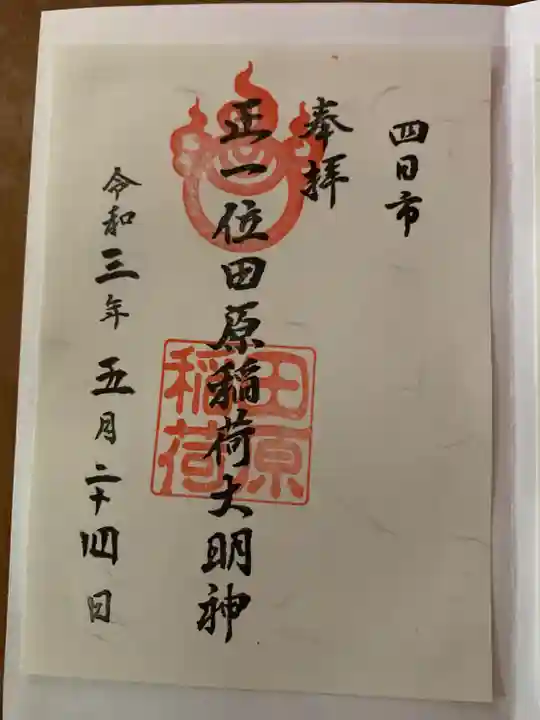 四日市
奉拝
正一位田原稲荷大明神
田原
稲荷
令和三年五月二十四日